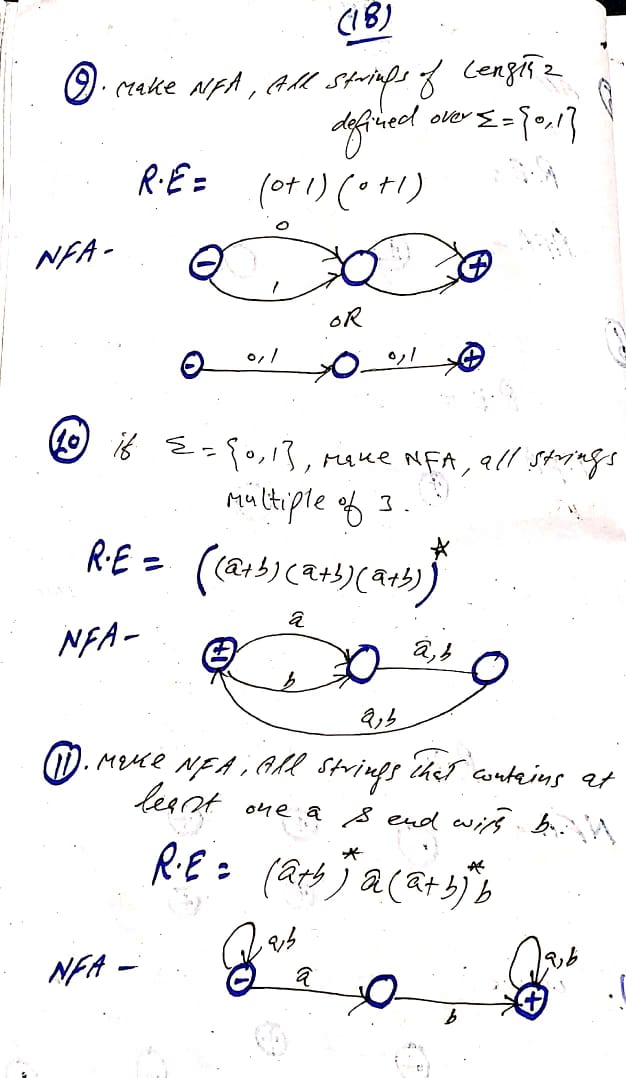 (18)
9. Make NFA, All strings of Length 2
defined over Σ = {0,1}
R.E = (0+1) (0+1)
NFA -
0
-
+
1
OR
- 0,1 0,1 +
10 if Σ = {0,1}, Make NFA, all strings
multiple of 3.
R.E = ((a+b)(a+b)(a+b))*
a
NFA -
± a,b
b
a,b
11. Make NFA, All strings that contains at
least one a & end with b.
R.E = (a+b)* a(a+b)* b
a,b a,b
NFA - - a
b +